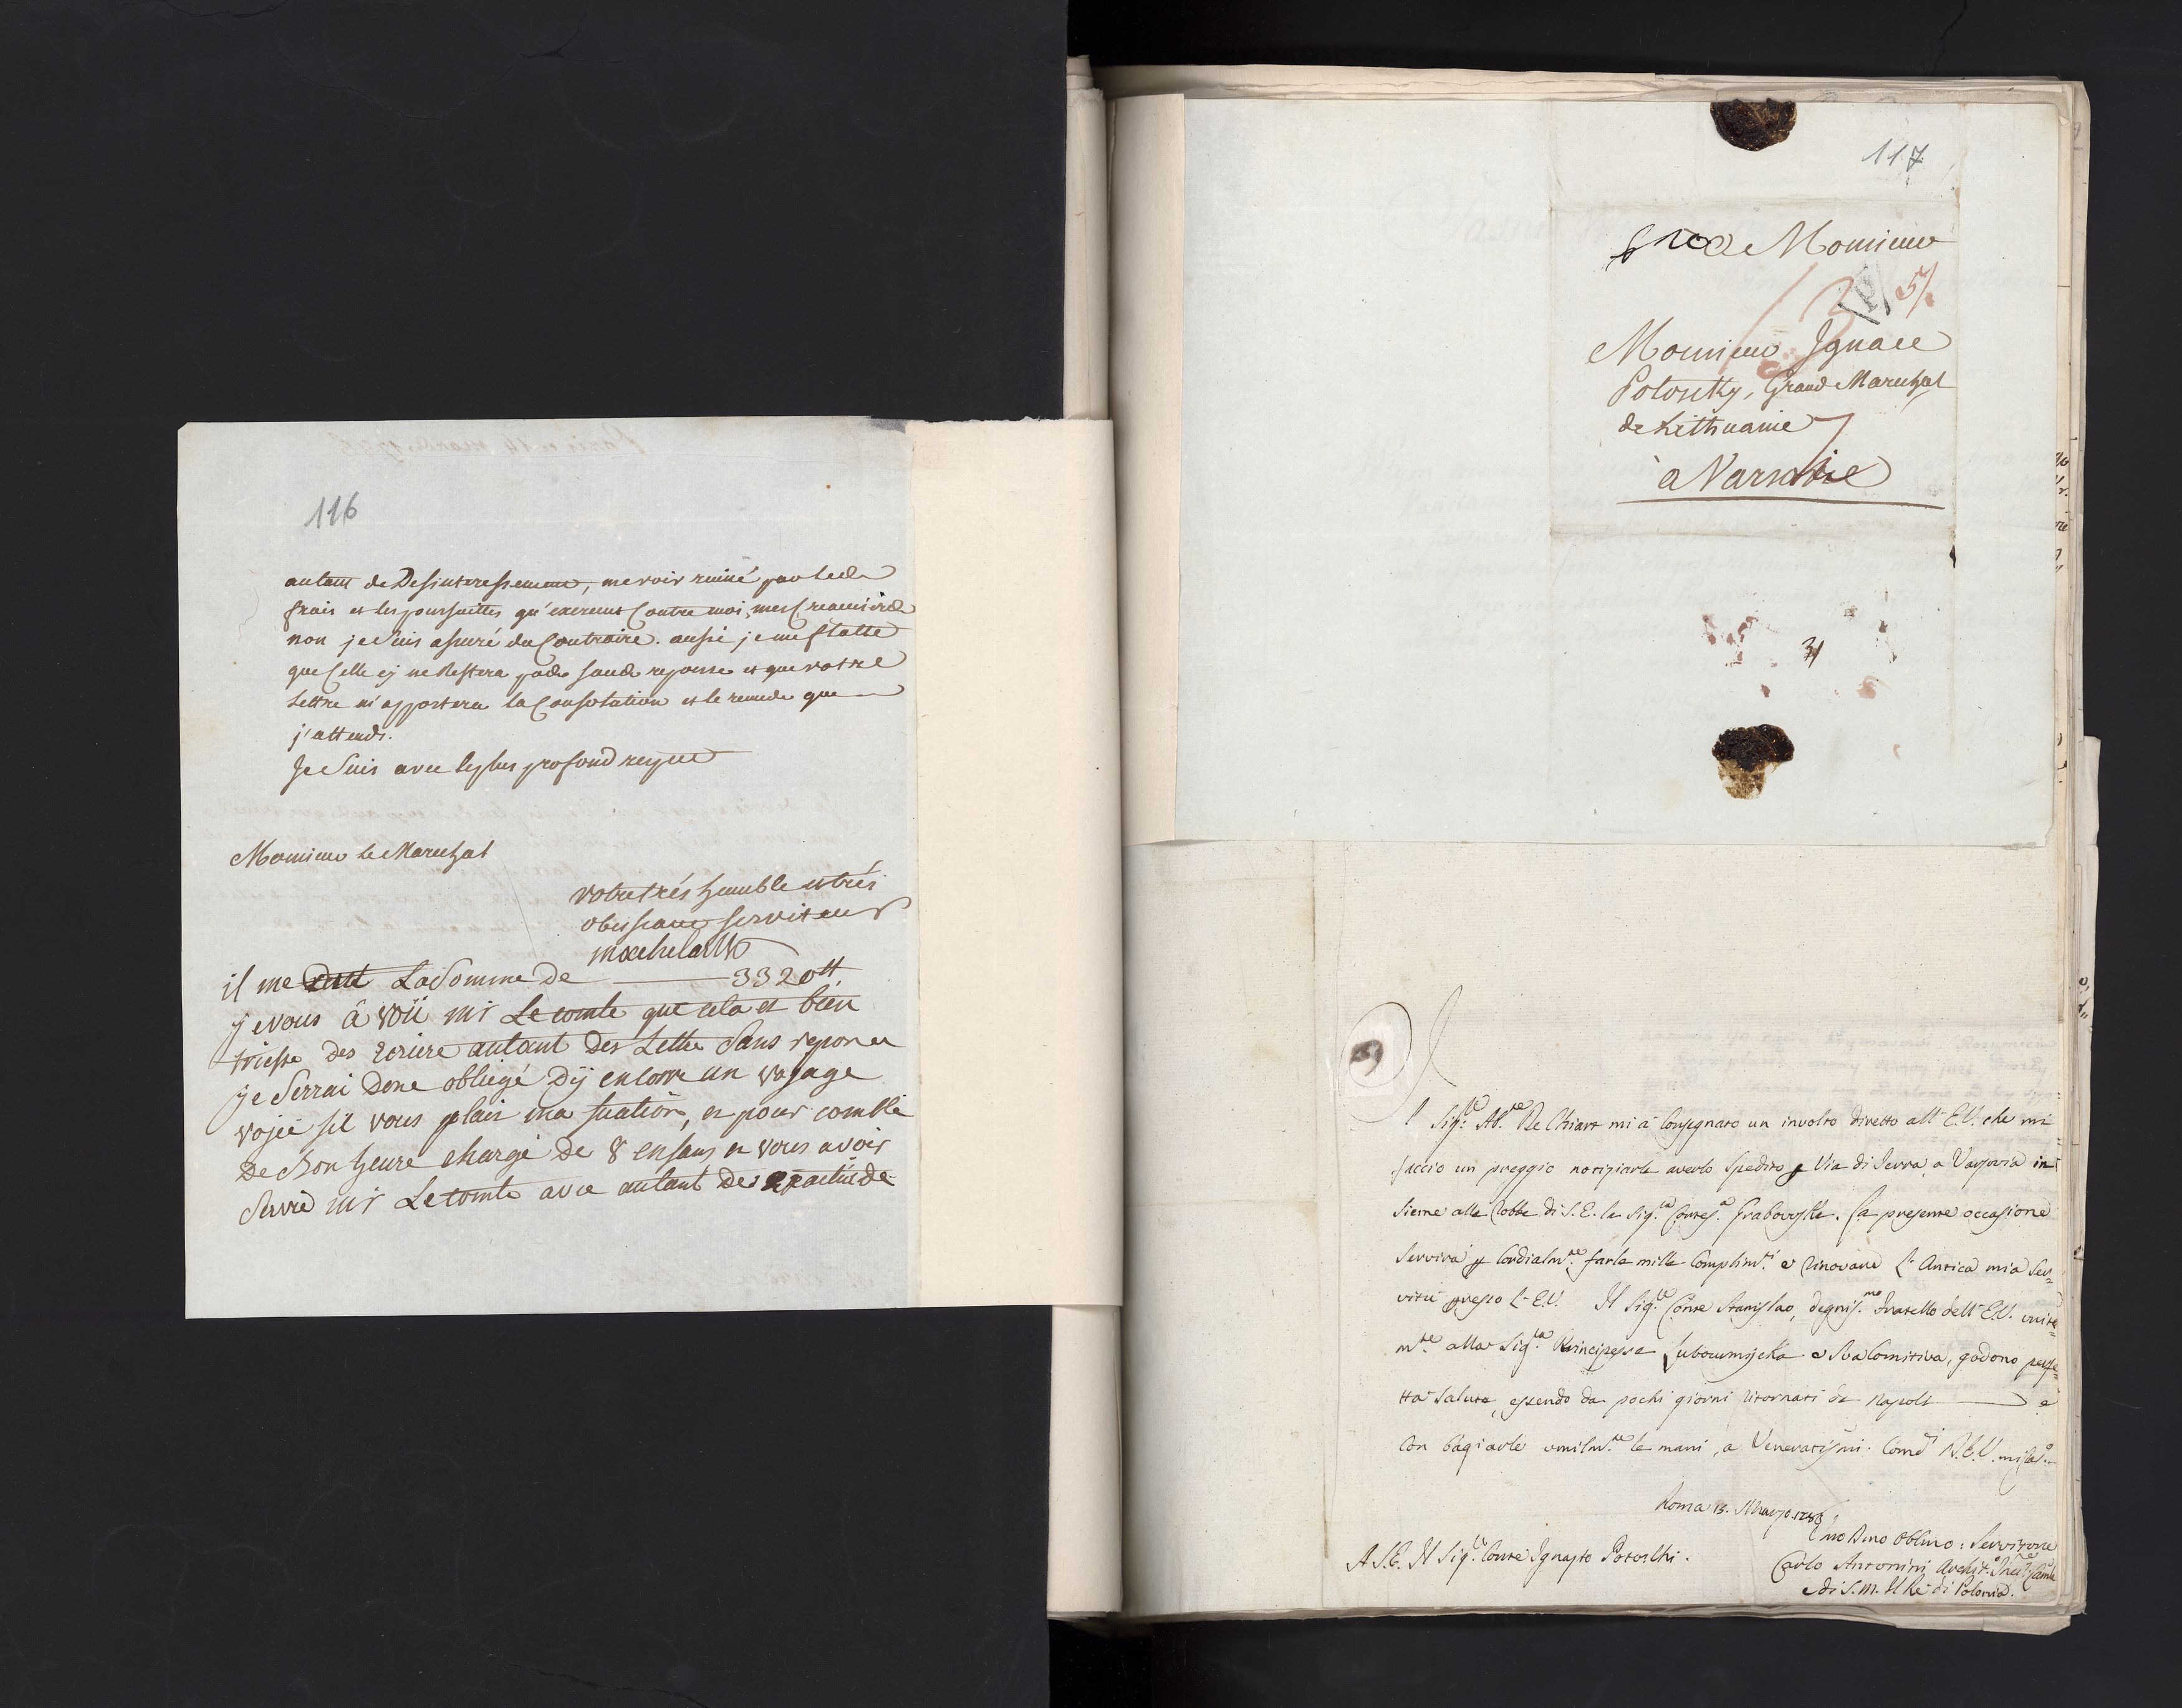 116
autant de Desinteressement, me voir ruiné par les
frais et les poursuittes qu'exercent Contre moi, mes Creanciers
non je suis assuré du Contraire. aussi je me flatte
que Celle cy ne Restera pas sans reponse et que votre
Lettre m'apportera la Consolation et le remede que
j'attends.
Je Suis avec le plus profond respect
Monsieur le Marechal
votre très humble et très
obeissant serviteur
il me La Somme de 3320tt
je vous à voü mr Le comte que cela et bien
trieste des autant des Lettre Sans reponce
je Serrai Donc obliegé Dÿ encorre un voyage
vojié sil vous plais ma , et pour comble
De Bonheure chargé de 8 enfans et vous avoir
Servie mr Le comte avce autant des exactiude
117
Monsieur
5/
Monsieur Ignace
Potoscky, Grand Marechal
de Lithuanie
à Varsovie
31
Il Sigr. Ab.te De Chiart mi à Consegnato un involto diretto all' E.V. che mi
faccio un preggio notiziarle averlo spedito p Via di Terra, a Varsovia in=
sieme alle Robbe di S.E. la Sig.ra Contes.a Grabovyska. La presente occasione
Servirà p Cordialm.te farle mille Complim.ti e rinovare l'Antica mia Ser=
vitù presso l'E.V. Il Sigr. Conte Stanislao, degnis.mo Fratello dell' E.V. unita=
m.te alla Sig.ra Principessa Lubowmijcka e Sua Comitiva, godono perfe=
tta salute, essendo da pochi giorni ritornati da Napoli e
Con bagiarle umilm.te le mani, a Veneratissmi. Comdi D.E.V.
Roma 15. Marzo 1786
Umo Dmo Obblmo: Servitore
Carlo Antonini Archit.o
e di S.M. Il Re di Polonia.
A S.E. Il Sigr. Conte Ignazio Potoschi.